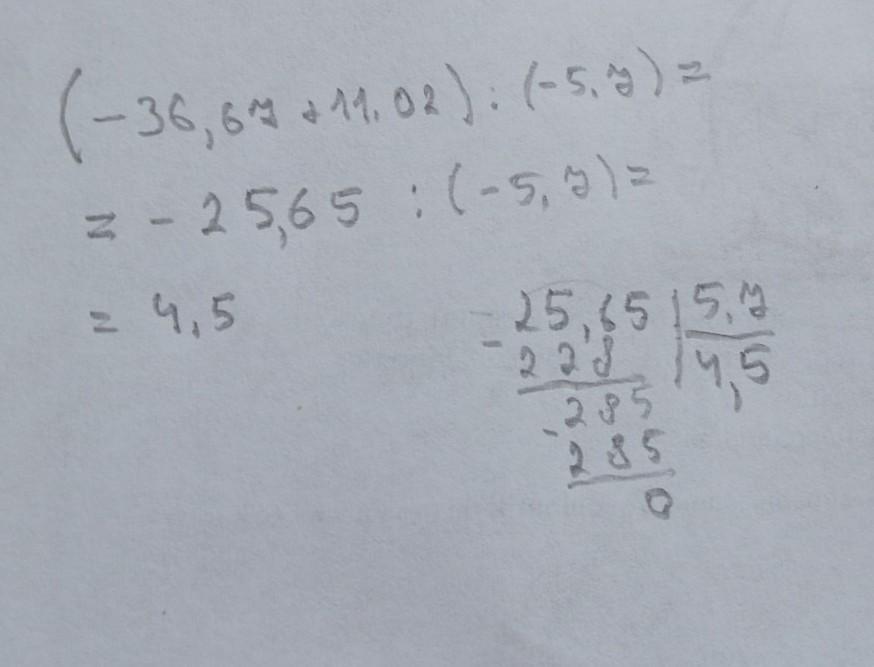 (-36,67+11.02):(-5.7)=
= -25,65 :(-5,7)=
= 4,5
-25,65 | 5.7
228 | 4,5
-285
285
0